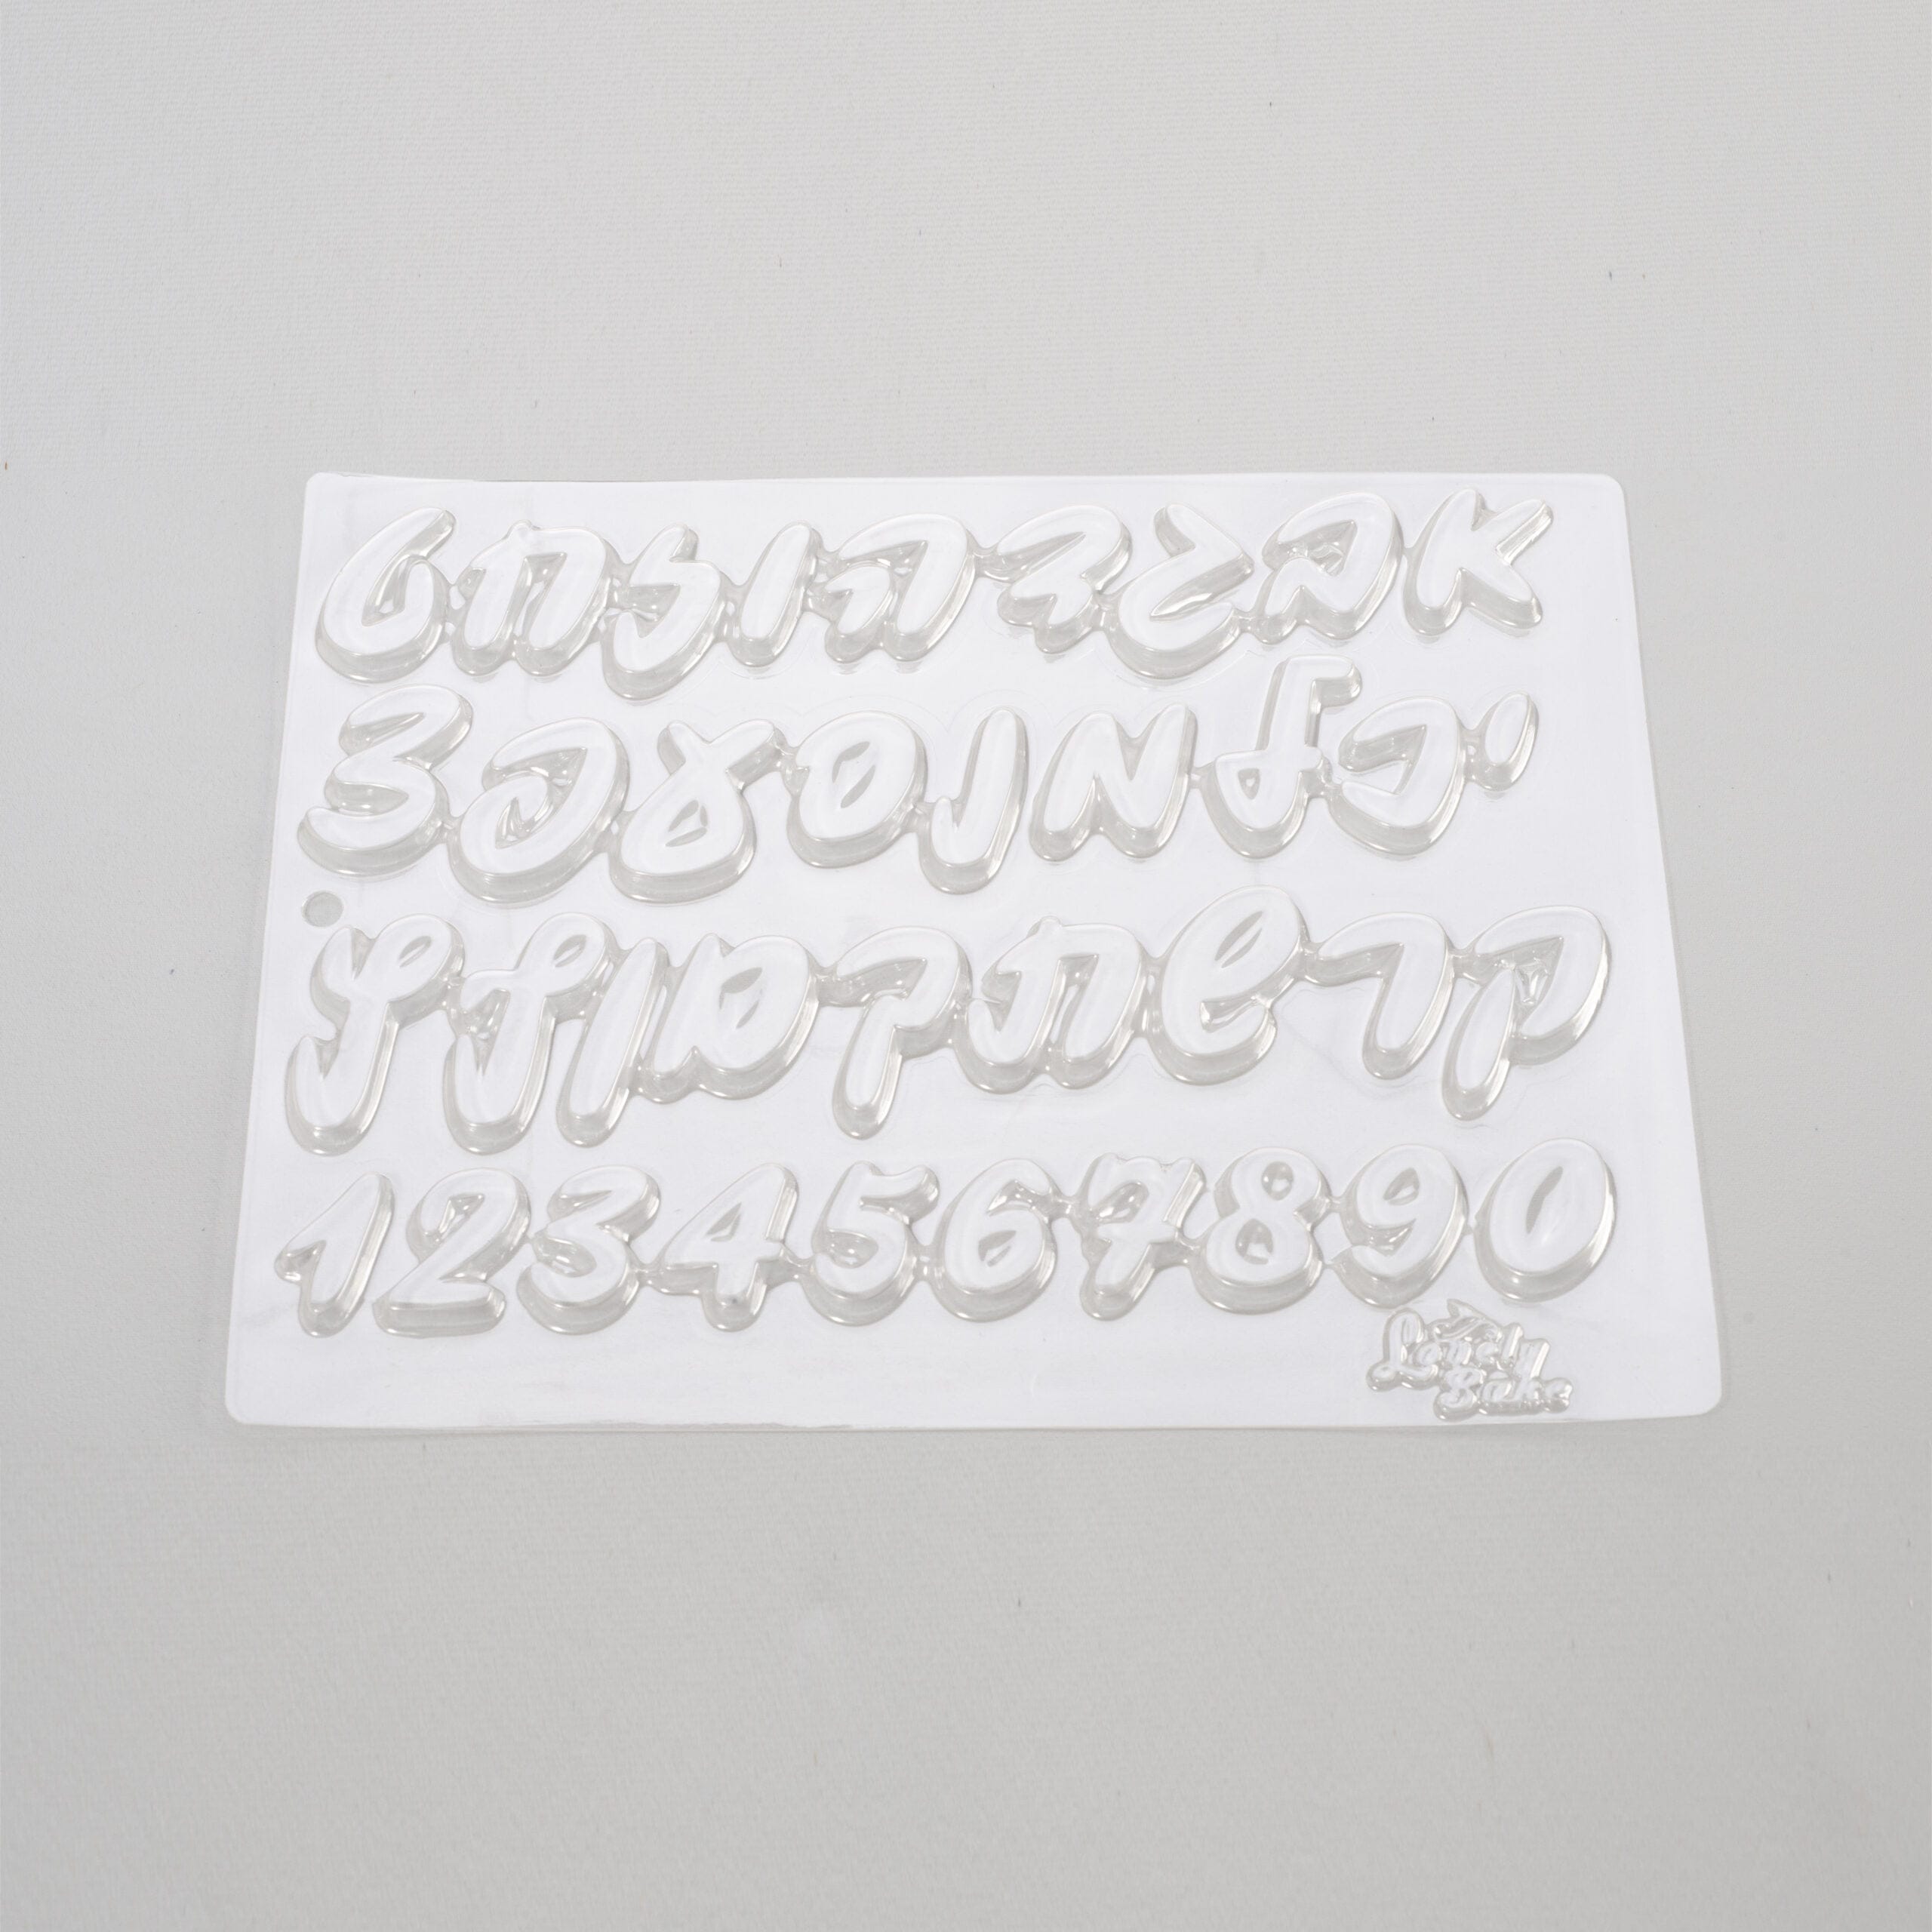 אבגדהוזחט
יכלמנסעפצ
קרשתךםןףץ
1234567890
Lovely
Bake